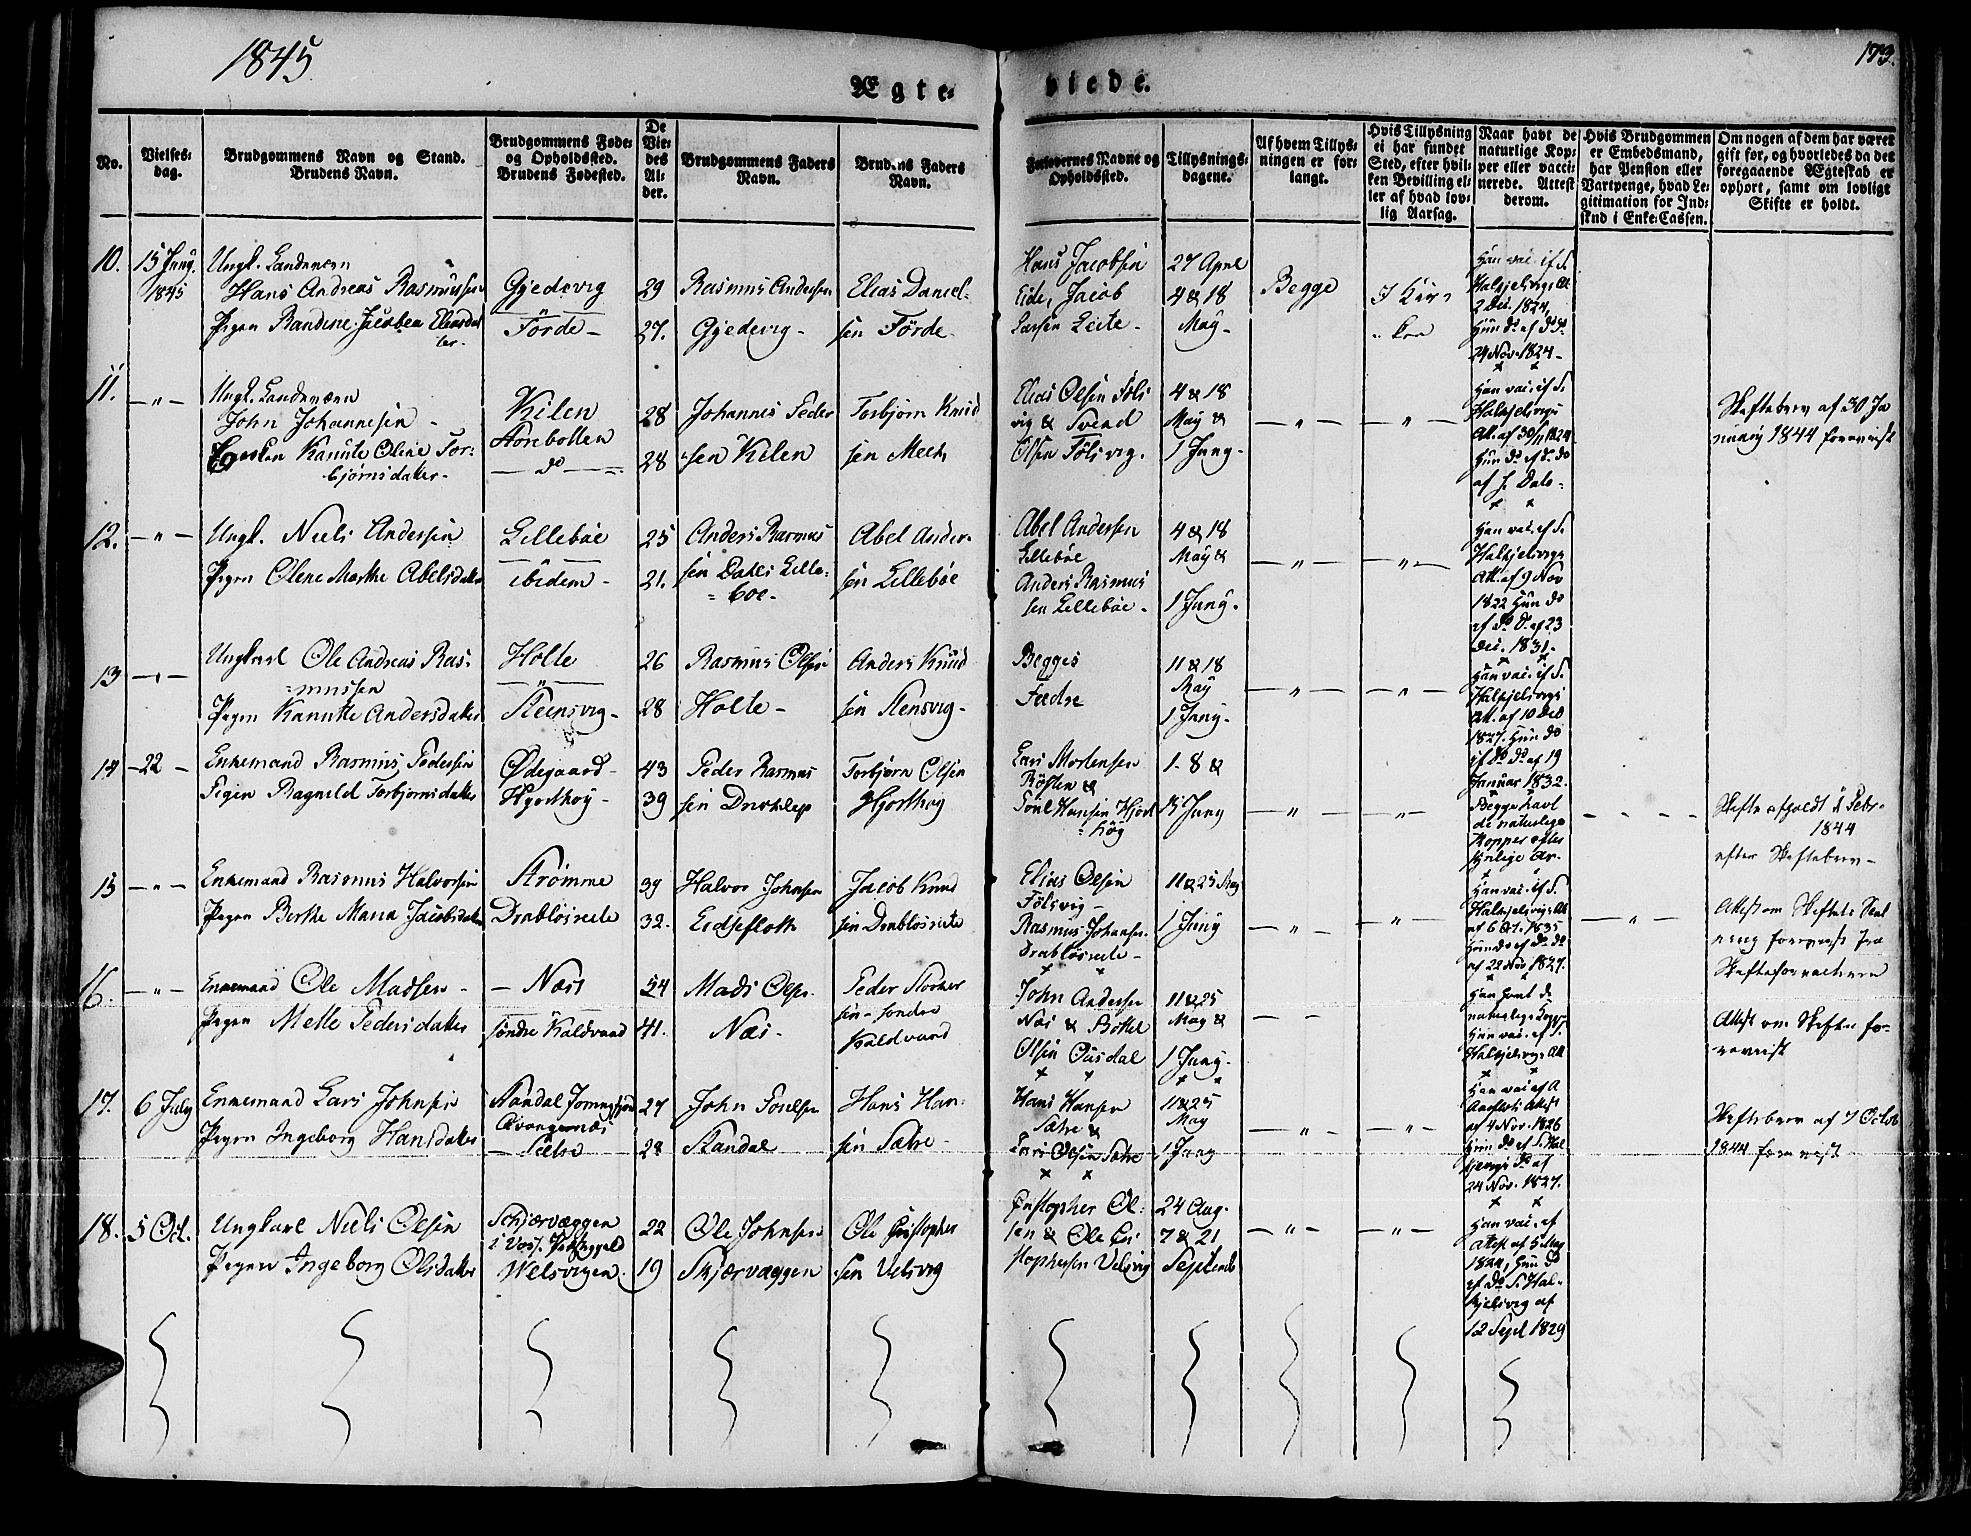 1845
173.
Ægte-
viede.
No.
Vielses-
dag.
Brudgommens Navn og Stand.
Brudens Navn.
Brudgommens Føde-
og Opholdssted.
Brudens Fødested.
De
Vie-
des
Al-
der.
Brudgommens Faders
Navn.
Brudens Faders
Navn.
Forlovernes Navne og
Opholdssted.
Tillysnings-
dagene.
Af hvem Tillys-
ningen er for-
langt.
Hvis Tillysning
ei har fundet
Sted, efter hvil-
ken Bevilling el-
ler af hvad lov-
lig Aarsag.
Naar havt de
naturlige Kop-
per eller vacci-
nerede. Attest
derom.
Hvis Brudgommen
er Embedsmand,
har Pension eller
Vartpenge, hvad Le-
gitimation for Ind-
skud i Enke-Cassen.
Om nogen af dem har været
gift før, og hvorledes da det
foregaaende Ægteskab er
ophørt, samt om lovligt
Skifte er holdt.
10. 15 Juny 1845
Ungk. Landværn
Hans Andreas Rasmussen
Pigen Randine Jacobea
Gjedsvig
Förde
29
27.
Rasmus Andersen
Gjedevig
Elias Daniel-
sen Förde
Hans Jacobsen
Eide, Jacob
Larsen Leite
27 April
4 & 18
May
Begge
I Kir-
Han vac. af S.
Halkjelsvigs
2 Dec. 1824,
Hun do af do
24 Nov. 1824
11. — " —
Ungk. Landværn
John Johannesen
Kanutte Oline Tor-
björnsdatter
Kilen
Storebotten
— do —
28
28
Johannes Peder
sen Kilen
Torbjørn Knud
sen Meek
Elias Olsen Föls
vig & Svend
Olsen Fölsvig.
4 & 18
May &
1 Juny
— " —
— " —
Han vac. af S.
Halkjelsvigs
Att. af 30/11 1824
Hun do af do do
af s. Dato
Skiftebrev af 30 Ja
nuary 1844 forevist
12. — " —
Ungk. Niels Andersen
Pigen Olene Marthe Abelsdatter
Lillebøe
ibidem
25
21.
Anders Rasmus
sen Dahls Lille-
böe
Abel Ander-
sen Lillebøe
Abel Andersen
Lillebøe
Anders Rasmus
sen Lillebøe
4 & 18
May &
1 Juny.
— " —
— " —
Han vac. af S.
Halkjelsvigs
Att. af 9 Nov
1822 Hun do
af do d. af 23
Dec. 1831.
13 — " —
Ungkarl Ole Andreas Ras-
mussen
Pigen Kanutte Andersdatter
Holte
Steensvig
26
28
Rasmus Olsen
Holte
Anders Knud
sen Stensvig
Begges
Fædre
11 & 18
May
1 Juny.
— " —
— " —
Han vac. af S.
Halkjelsvigs
Att. af 10 Dec
1827. Hun do
af do do af 19
Januar 1832.
14 — 22 —
Enkemand Rasmus Pedersen
Pigen Ragnild Torbjørnsdatter
Ødegaard
Hjorthoy
43
39
Peder Rasmus
sen
Torbjørn Olsen
Hjorthoy
Mortensen
&
Poul Hansen Hjort
høg
1. 8 &
15 Juny
— " —
— " —
Begge havt
de naturlige
Kopper efter
synlige Ar.
Skifte afholdt 1 Febr.
1844
efter Skiftebrev
15 — " —
Enkemand Rasmus Halvorsen
Pigen Berthe Maria Jacobsdatter
Strømme
Drabløsreete
39
32.
Halvor Johnsen
Eidseflott
Jacob Knud
sen Drabløsreete
Elias Olsen
Fölsvig
Rasmus Johansen
Drabløsreete
11 & 25 May
1 Juny
— " —
— " —
Han vac. af S.
Halkjelsvigs Att
af 6 Oct. 1835
Hun do af do do
af 22 Nov. 1827.
— " —
Attest om Skiftets
forevist fra
Skifteforvalteren
16. — " —
Enkemand Ole Madsen
Pigen Mette Pedersdatter
Næs
Söndre Kaldvaad
54
41.
Mads Olsen
Næs
Peder
sen söndre
Kaldvaad
John Andersen
Næs &
Olsen Ousdal
11 & 25
May &
1 Juny.
— " —
Han havt de
naturlige Kopp.
Hun vac. af S.
Halkjelsvigs Att
Attest om Skifte fo-
revist
17. 6 July
Enkemand Lars Johnsen
Pigen Ingeborg Hansdatter
Standal
Sætre
27
28
John Poulsen
Standal
Hans Han-
sen Sætre
Hans Hansen
Sætre &
Lars Olsen Sætre
11 & 25
May
1 Juny
— " —
— " —
Han vac. af A
Aarsets Attest
af 4 Nov. 1826
Hun do af S. Hal
kjelsvigs do af
24 Nov. 1827.
Skiftebrev af 7 Octob
1844 forevist
18. 5 Oct.
Ungkarl Niels Olsen
Pigen Ingeborg Olsdatter
Schjervæggen
i Vors. Præstegjeld
Welsvigen.
22
19
Ole Johnsen
Skjærvæggen
Ole Cristopher
sen Velsvig
Cristopher Ol-
sen & Ole Cri
stophersen Velsvig
24 Aug.
7 & 21
Septemb
— " —
— " —
Han vac. af
Attest af 5 May
1824, Hun do
af do S. Hal-
kjelsvig af
12 Sept 1829